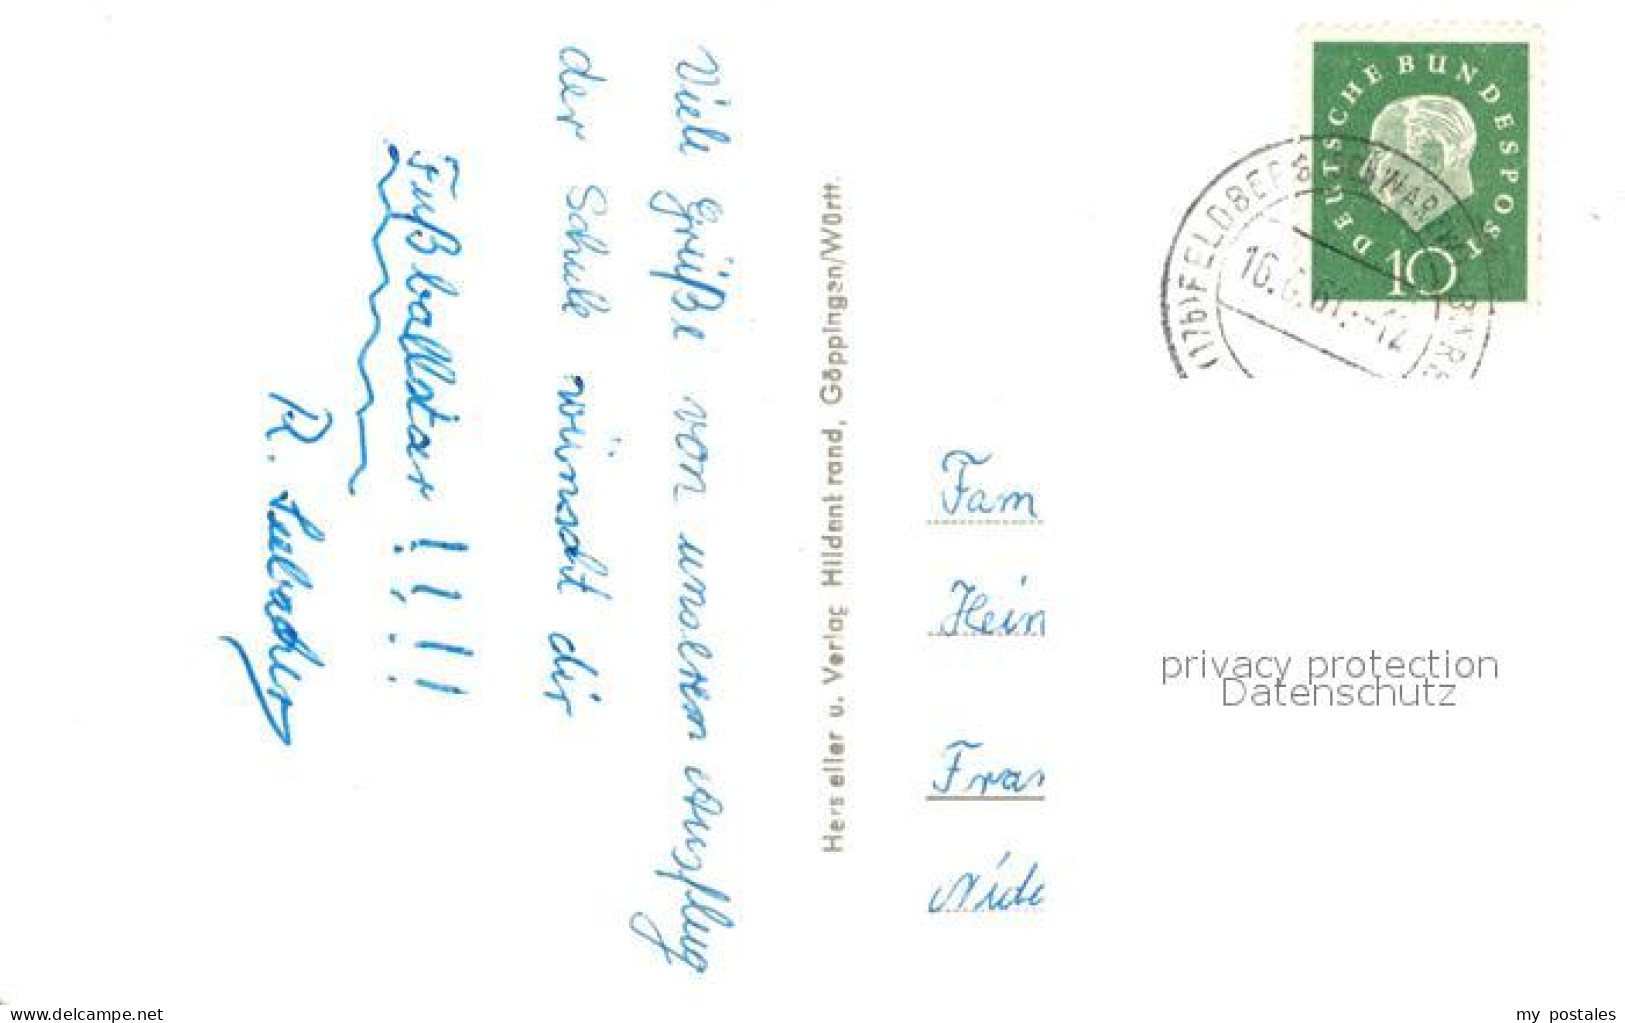 Viele Grüße von unserem Ausflug
der Schule wünscht dir
Fußballstar !!!!
R.
Hersteller u. Verlag Hildenbrand, Göppingen/Württ.
DEUTSCHE BUNDESPOST
10
(17b) FELDBERG (SCHWARZWALD)
16.6.61.-12
Fam
Hein
Fra
privacy protection
Datenschutz
www.delcampe.net
my_postales